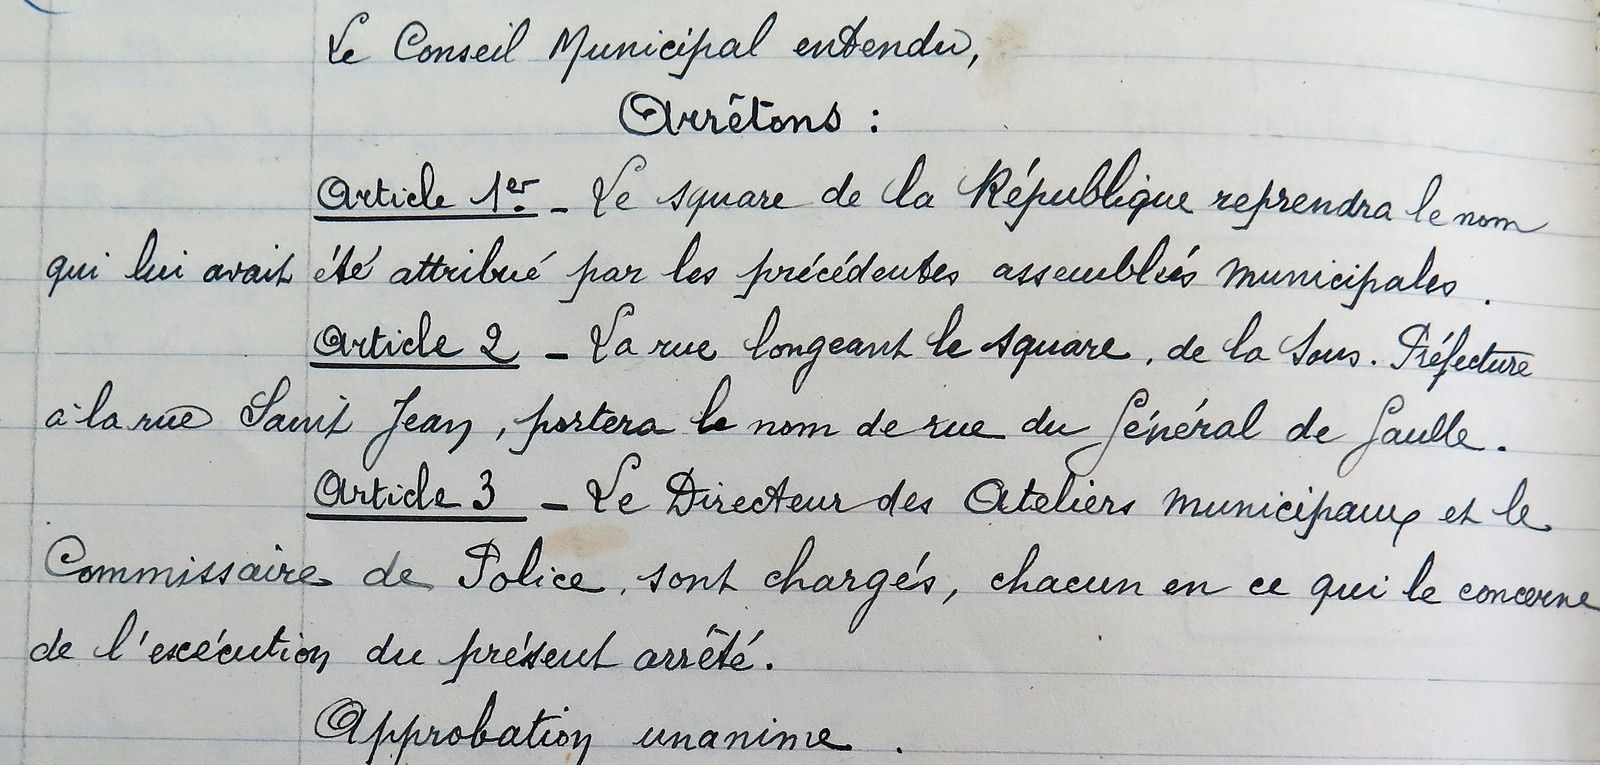 Le Conseil Municipal entendu,
Arrêtons :
Article 1er. - Le square de la République reprendra le nom
qui lui avait été attribué par les précédentes assemblées municipales.
Article 2 - La rue longeant le square, de la Sous-Préfecture
à la rue Saint Jean, portera le nom de rue du Général de Gaulle.
Article 3 - Le Directeur des Ateliers municipaux et le
Commissaire de Police, sont chargés, chacun en ce qui le concerne
de l'exécution du présent arrêté.
Approbation unanime.